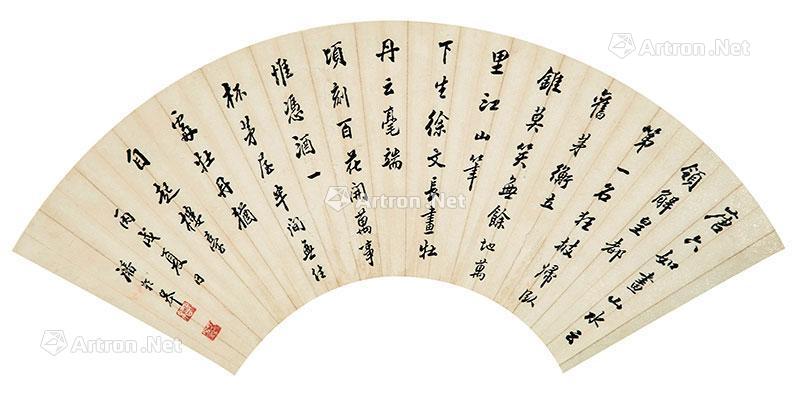 唐六如畫山水云
領解皇都
第一名猖披歸臥
舊茅衡立
錐莫笑無餘地萬
里江山筆
下生徐文長畫牡
丹云毫端
頃刻百花開萬事
惟憑酒一
杯茅屋半間無住
處牡丹猶
自起樓臺
丙戌夏日
潘齡皋
Artron.Net
Artron.Net
Artron.Net
Artron.Net